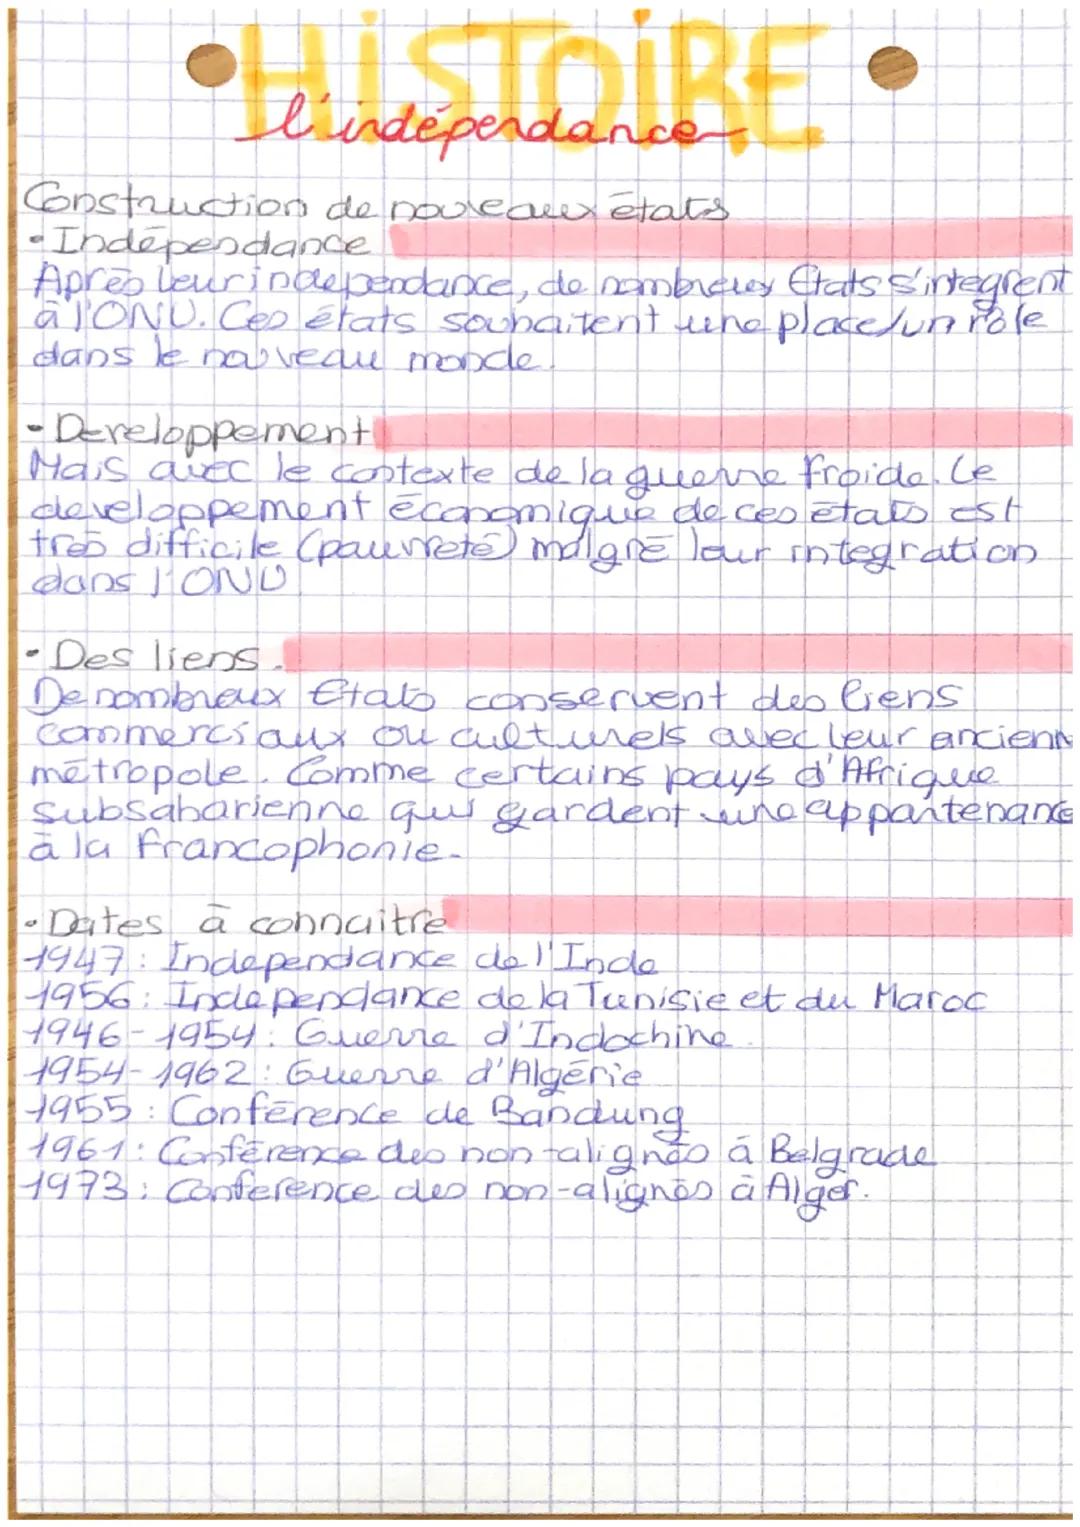 HiSTOiRE
l'indépendance
Construction de nouveaux états
• Indépendance
Après leur independance, de nombreux États s'integrent
à l'ONU. Ces états souhaitent une place/un rôle
dans le nouveau monde.
- Developpement
Mais avec le contexte de la guerre froide. Le
developpement économique de ces états est
très difficile (pauvreté) malgré leur integration
dans l'ONU
• Des liens.
De nombreux États conservent des liens
commerciaux ou culturels avec leur ancienn
métropole. Comme certains pays d'Afrique
subsaharienne qui gardent une appartenance
à la francophonie.
• Dates à connaitre
1947: Independance de l'Inde
1956: Independance de la Tunisie et du Maroc
1946-1954: Guerre d'Indochine.
1954-1962: Guerre d'Algérie
1955: Conférence de Bandung
1961: Conférence des non-alignés à Belgrade
1973: Conference des non-alignés à Alger.